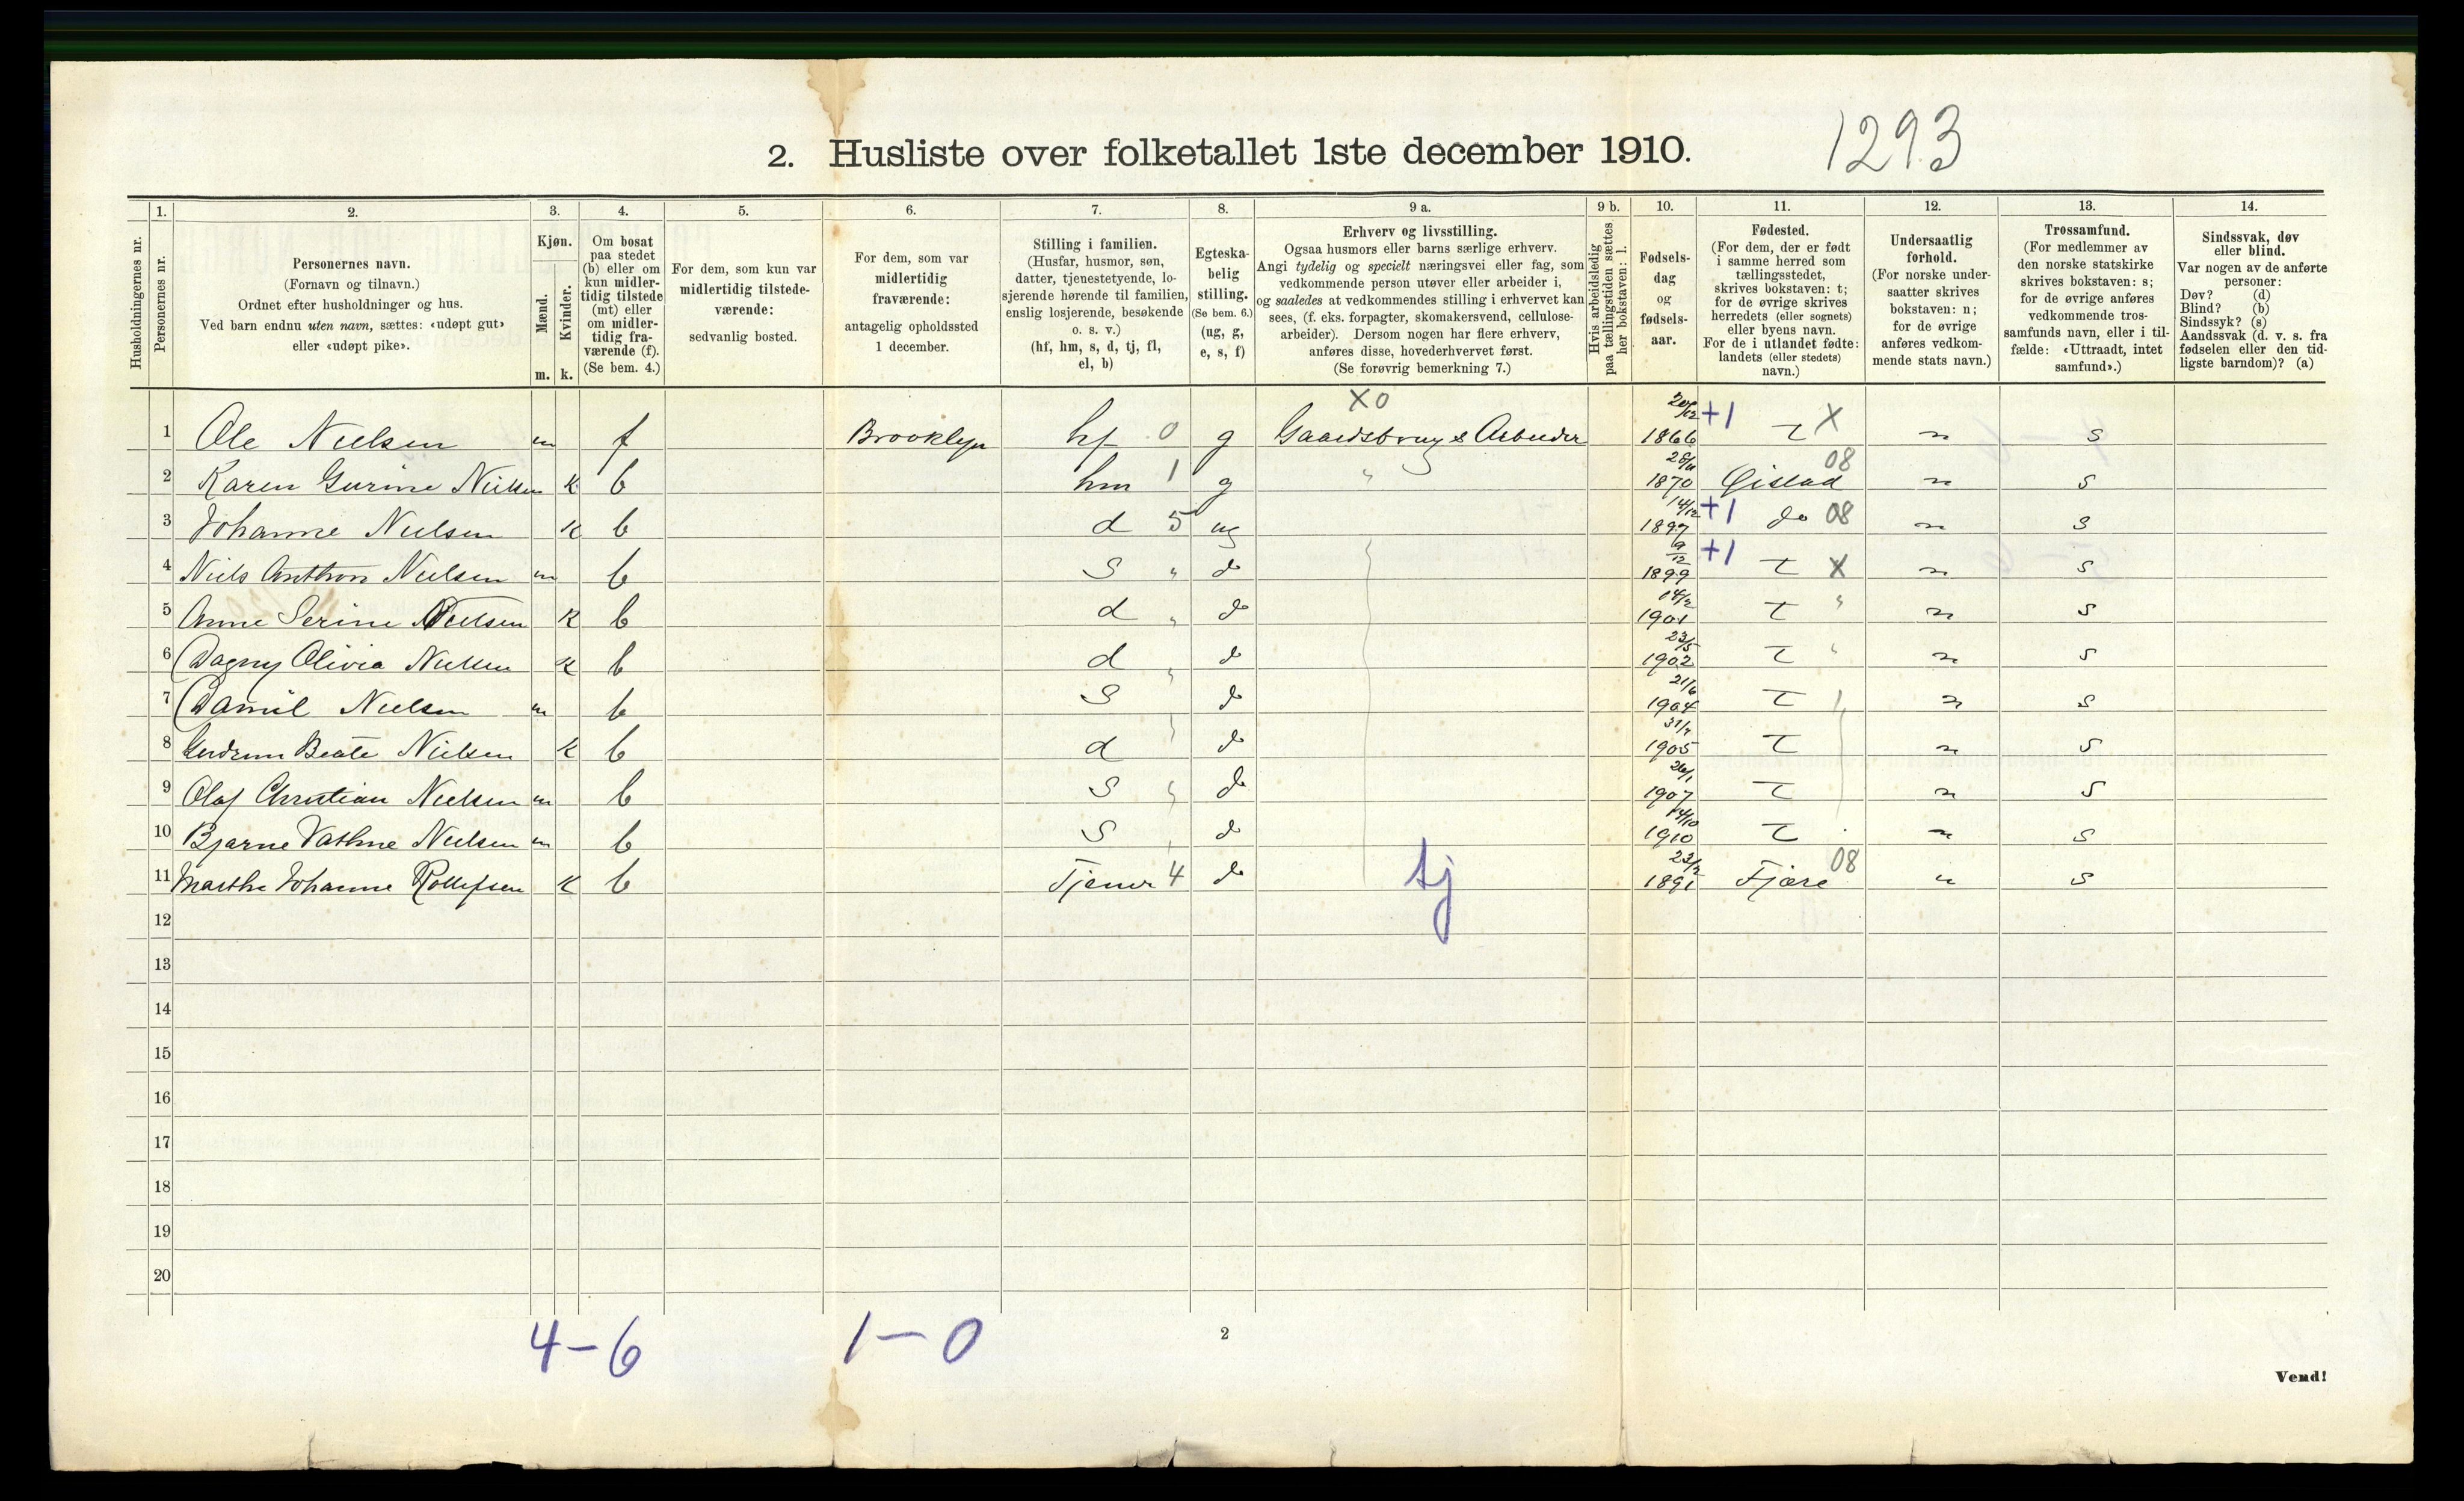 2. Husliste over folketallet 1ste december 1910.
1293
Husholdningernes nr.
1.
Personernes nr.
2.
Personernes navn.
(Fornavn og tilnavn.)
Ordnet efter husholdninger og hus.
Ved barn endnu uten navn, sættes: «udøpt gut»
eller «udøpt pike».
3.
Kjøn.
Mænd.
Kvinder.
m. k.
4.
Om bosat
paa stedet
(b) eller om
kun midler-
tidig tilstede
(mt) eller
om midler-
tidig fra-
værende (f).
(Se bem. 4.)
5.
For dem, som kun var
midlertidig tilstede-
værende:
sedvanlig bosted.
6.
For dem, som var
midlertidig
fraværende:
antagelig opholdssted
1 december.
7.
Stilling i familien.
(Husfar, husmor, søn,
datter, tjenestetyende, lo-
sjerende hørende til familien,
enslig losjerende, besøkende
o. s. v.)
(hf, hm, s, d, tj, fl,
el, b)
8.
Egteska-
belig
stilling.
(Se bem. 6.)
(ug, g,
e, s, f)
9 a.
Erhverv og livsstilling.
Ogsaa husmors eller barns særlige erhverv.
Angi tydelig og specielt næringsvei eller fag, som
vedkommende person utøver eller arbeider i,
og saaledes at vedkommendes stilling i erhvervet kan
sees, (f. eks. forpagter, skomakersvend, cellulose-
arbeider). Dersom nogen har flere erhverv,
anføres disse, hovederhvervet først.
(Se forøvrig bemerkning 7.)
9 b.
Hvis arbeidsledig
paa tællingstiden sættes
her bokstaven: l.
10.
Fødsels-
dag
og
fødsels-
aar.
11.
Fødested.
(For dem, der er født
i samme herred som
tællingsstedet,
skrives bokstaven: t;
for de øvrige skrives
herredets (eller sognets)
eller byens navn.
For de i utlandet fødte:
landets (eller stedets)
navn.)
12.
Undersaatlig
forhold.
(For norske under-
saatter skrives
bokstaven: n;
for de øvrige
anføres vedkom-
mende stats navn.)
13.
Trossamfund.
(For medlemmer av
den norske statskirke
skrives bokstaven: s;
for de øvrige anføres
vedkommende tros-
samfunds navn, eller i til-
fælde: «Uttraadt, intet
samfund».)
14.
Sindssvak, døv
eller blind.
Var nogen av de anførte
personer:
Døv? (d)
Blind? (b)
Sindssyk? (s)
Aandssvak (d. v. s. fra
fødselen eller den tid-
ligste barndom)? (a)
X0
1 Ole Nielsen m f Brooklyn hf 0 g Gaardsbrug & Arbeider 20/12 1866 +1 t X n s
2 Karen Gurine Nielsen K b hm 1 g " 28/11 1870 Øistad 08 n s
3 Johanne Nielsen K b d 5 ug 14/12 1897 +1 do 08 n s
4 Niels Anthon Nielsen m b s " do 9/12 1899 +1 t X n s
5 Anne Serine Nielsen K b d " do 14/2 1901 t " n s
6 Dagny Olivia Nielsen K b d " do 23/5 1902 t " n s
7 Daniil Nielsen m b s " do 21/6 1904 t n s
8 Gudrun Beate Nielsen K b d do 31/7 1905 t n s
9 Olaf Christian Nielsen m b s " do 26/1 1907 t n s
10 Bjarne Vathne Nielsen m b s do 14/10 1910 t n s
11 Marthe Johanne Rollefsen K b Tjener 4 do tj 23/2 1891 Fjære 08 n s
12
13
14
15
16
17
18
19
20
4-6 1-0
2
Vend!